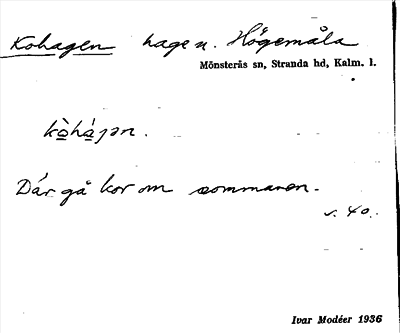 Kohagen hage n. Högemåla
Mönsterås sn, Stranda hd, Kalm. l.
kò̱há̱jən.
Där gå kor om sommaren.
s. 40.
Ivar Modéer 1936